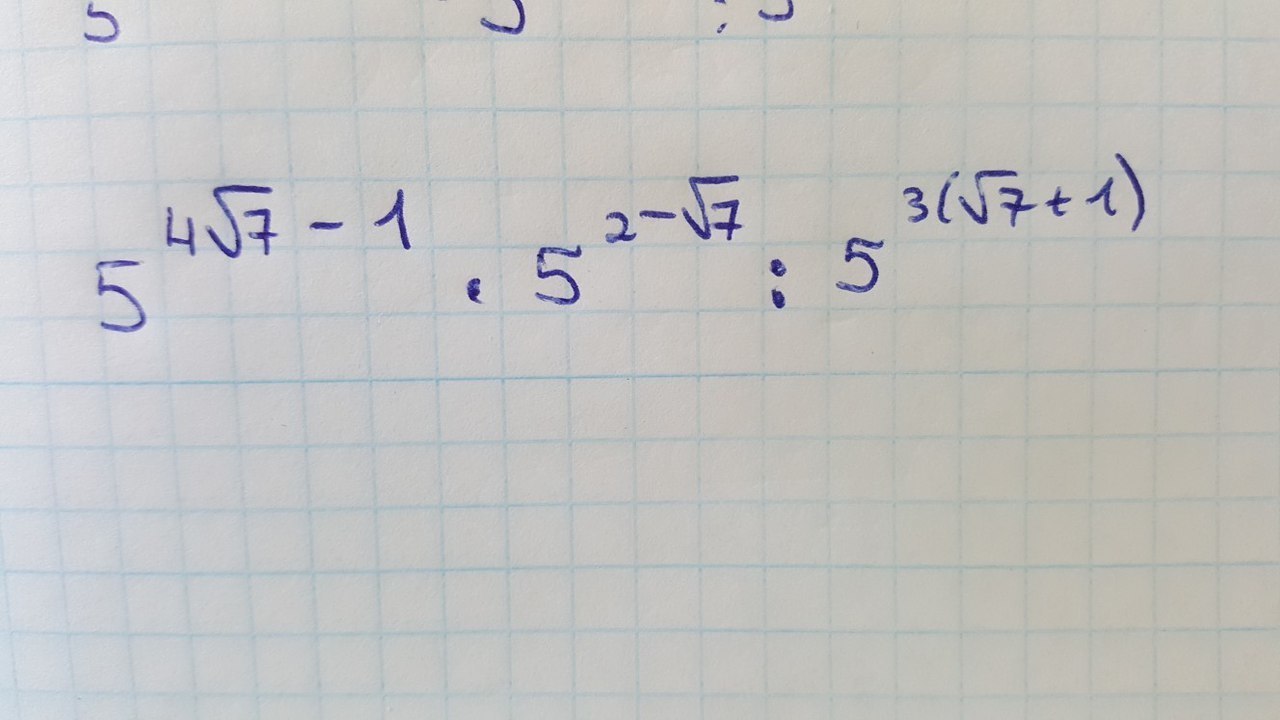 5^{4√7 - 1} · 5^{2-√7} : 5^{3(√7+1)}